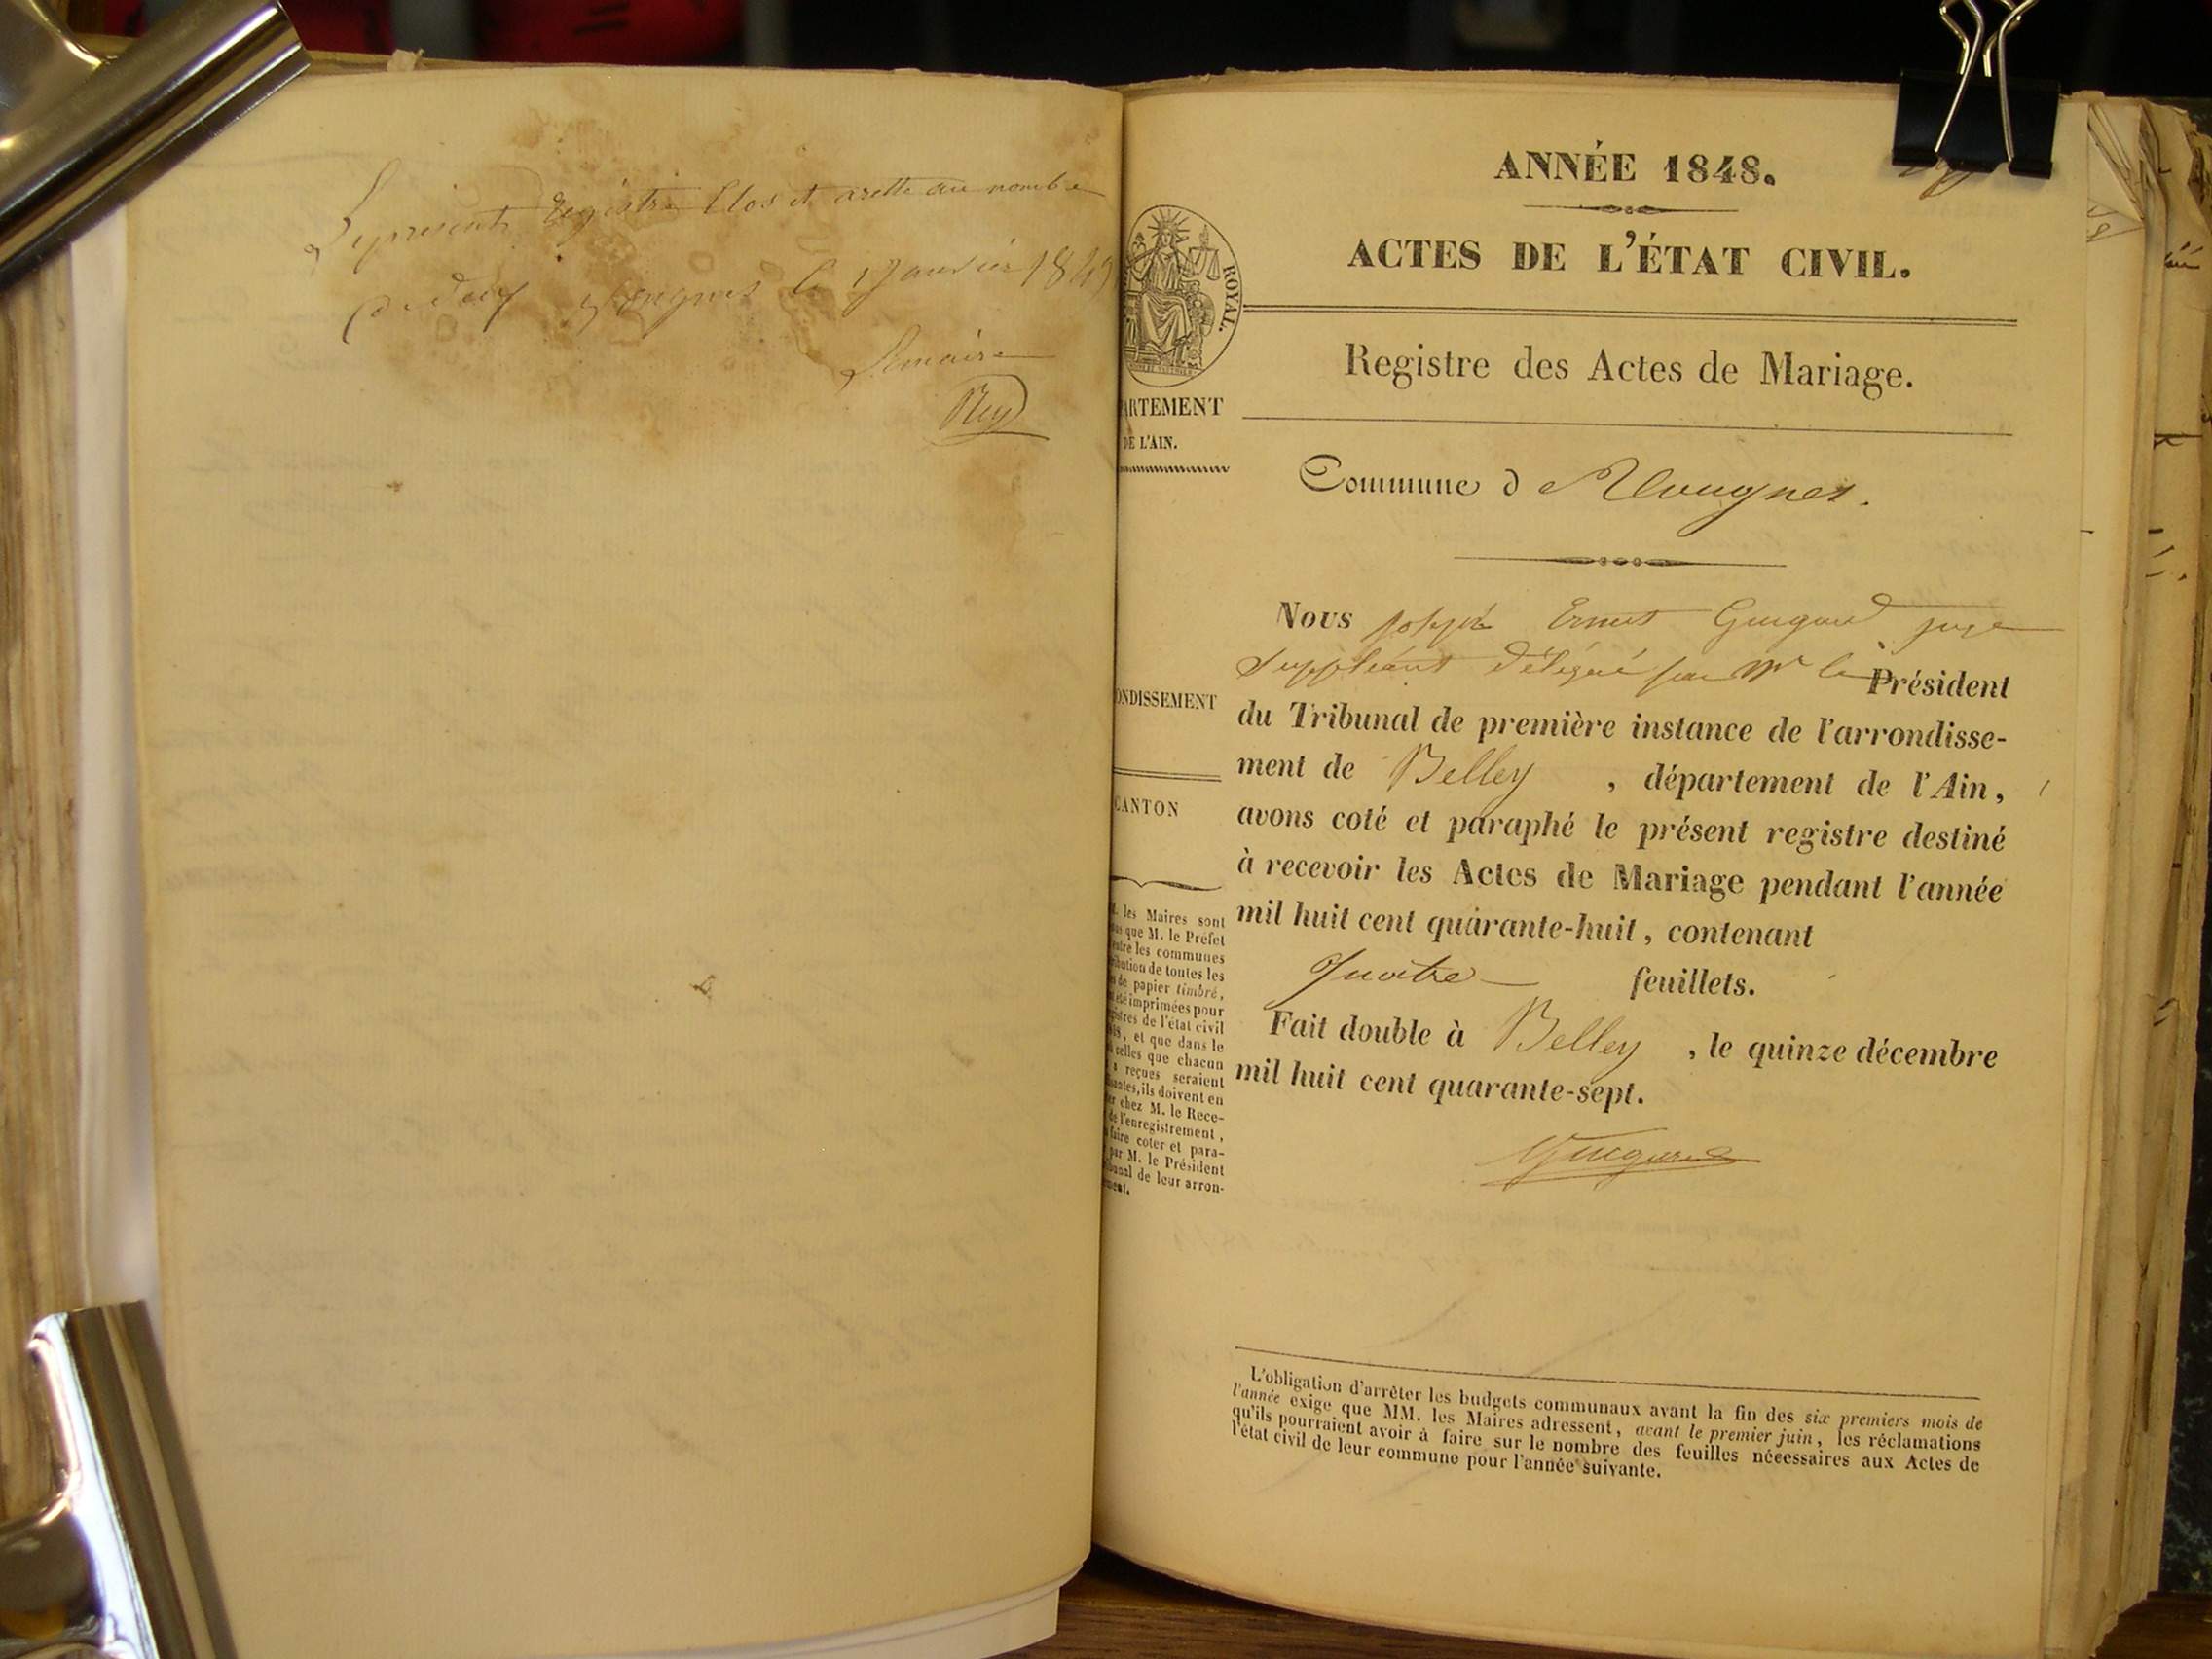 Le present Registre Clos et arette au nombre
de deux le 1 Janvier 1849
Le maire
Rey
ANNÉE 1848.
ACTES DE L'ÉTAT CIVIL.
ROYAL.
Registre des Actes de Mariage.
ARTEMENT
DE L'AIN.
Commune d
Nous joseph Ernest juge
suppléant délégué par Mr le Président
du Tribunal de première instance de l'arrondisse-
ment de Belley , département de l'Ain,
avons coté et paraphé le présent registre destiné
à recevoir les Actes de Mariage pendant l'année
mil huit cent quarante-huit, contenant
quatre feuillets.
Fait double à Belley , le quinze décembre
mil huit cent quarante-sept.
ONDISSEMENT
CANTON
. les Maires sont
que M. le Préfet
les communes
de toutes les
de papier timbré,
été imprimées pour
de l'état civil
, et que dans le
celles que chacun
reçues seraient
, ils doivent en
chez M. le Rece-
de l'enregistrement,
faire coter et para-
par M. le Président
de leur arron-
L'obligation d'arrêter les budgets communaux avant la fin des six premiers mois de
l'année exige que MM. les Maires adressent, avant le premier juin, les réclamations
qu'ils pourraient avoir à faire sur le nombre des feuilles nécessaires aux Actes de
l'état civil de leur commune pour l'année suivante.